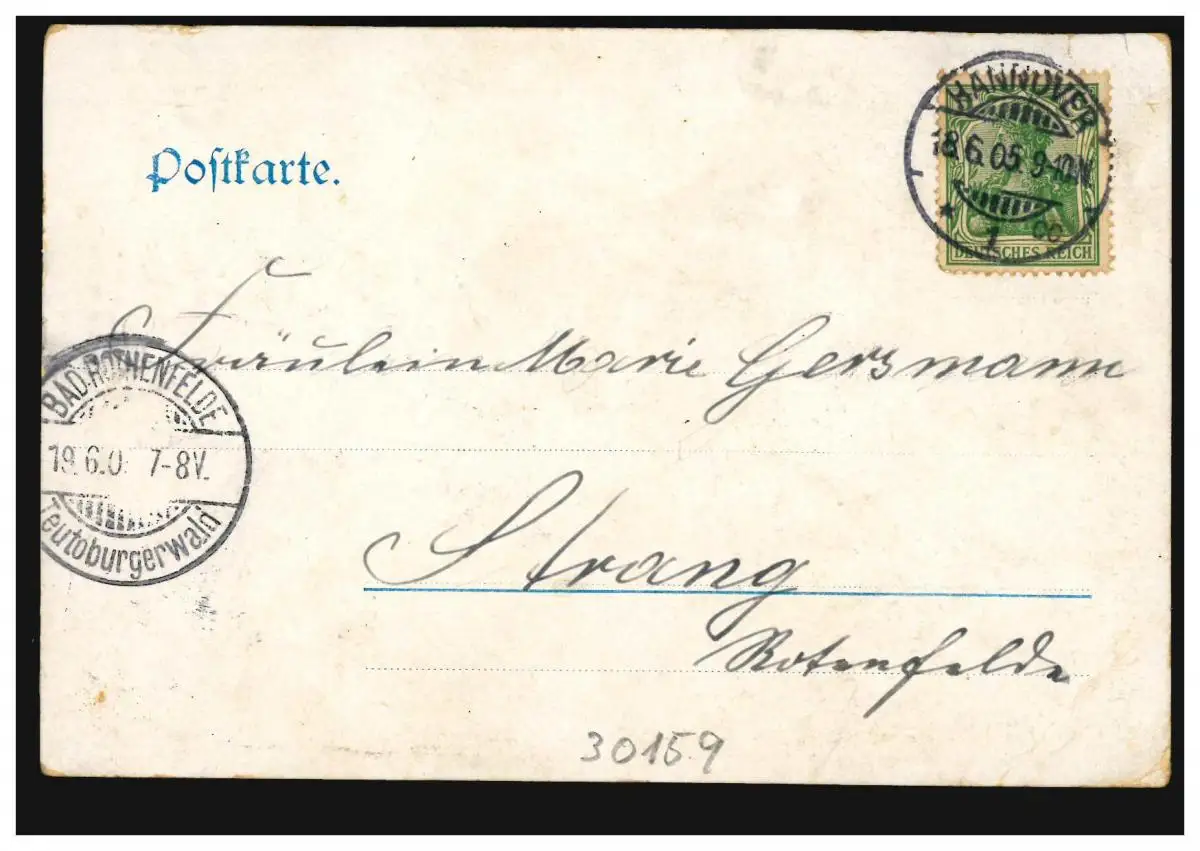 HANNOVER
18.6.05 9-10N
* 1 cc
DEUTSCHES REICH
Poſtkarte.
Fräulein Marie Gersmann
BAD ROTHENFELDE
19.6.0 7-8V.
Teutoburgerwald
Strang
Rotenfelde
30159